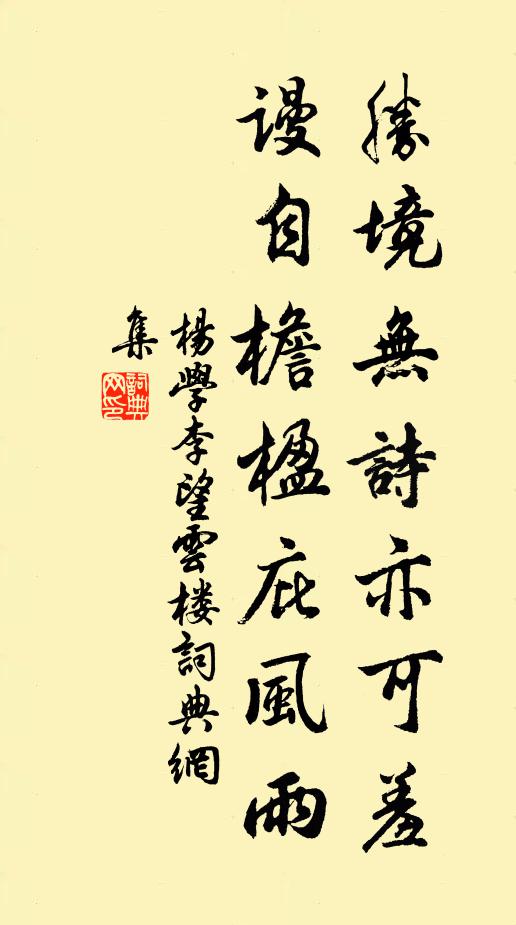 勝境無詩亦可羞
謾自檐楹庇風雨
楊學李望雲樓詞典網
集
詞典網印